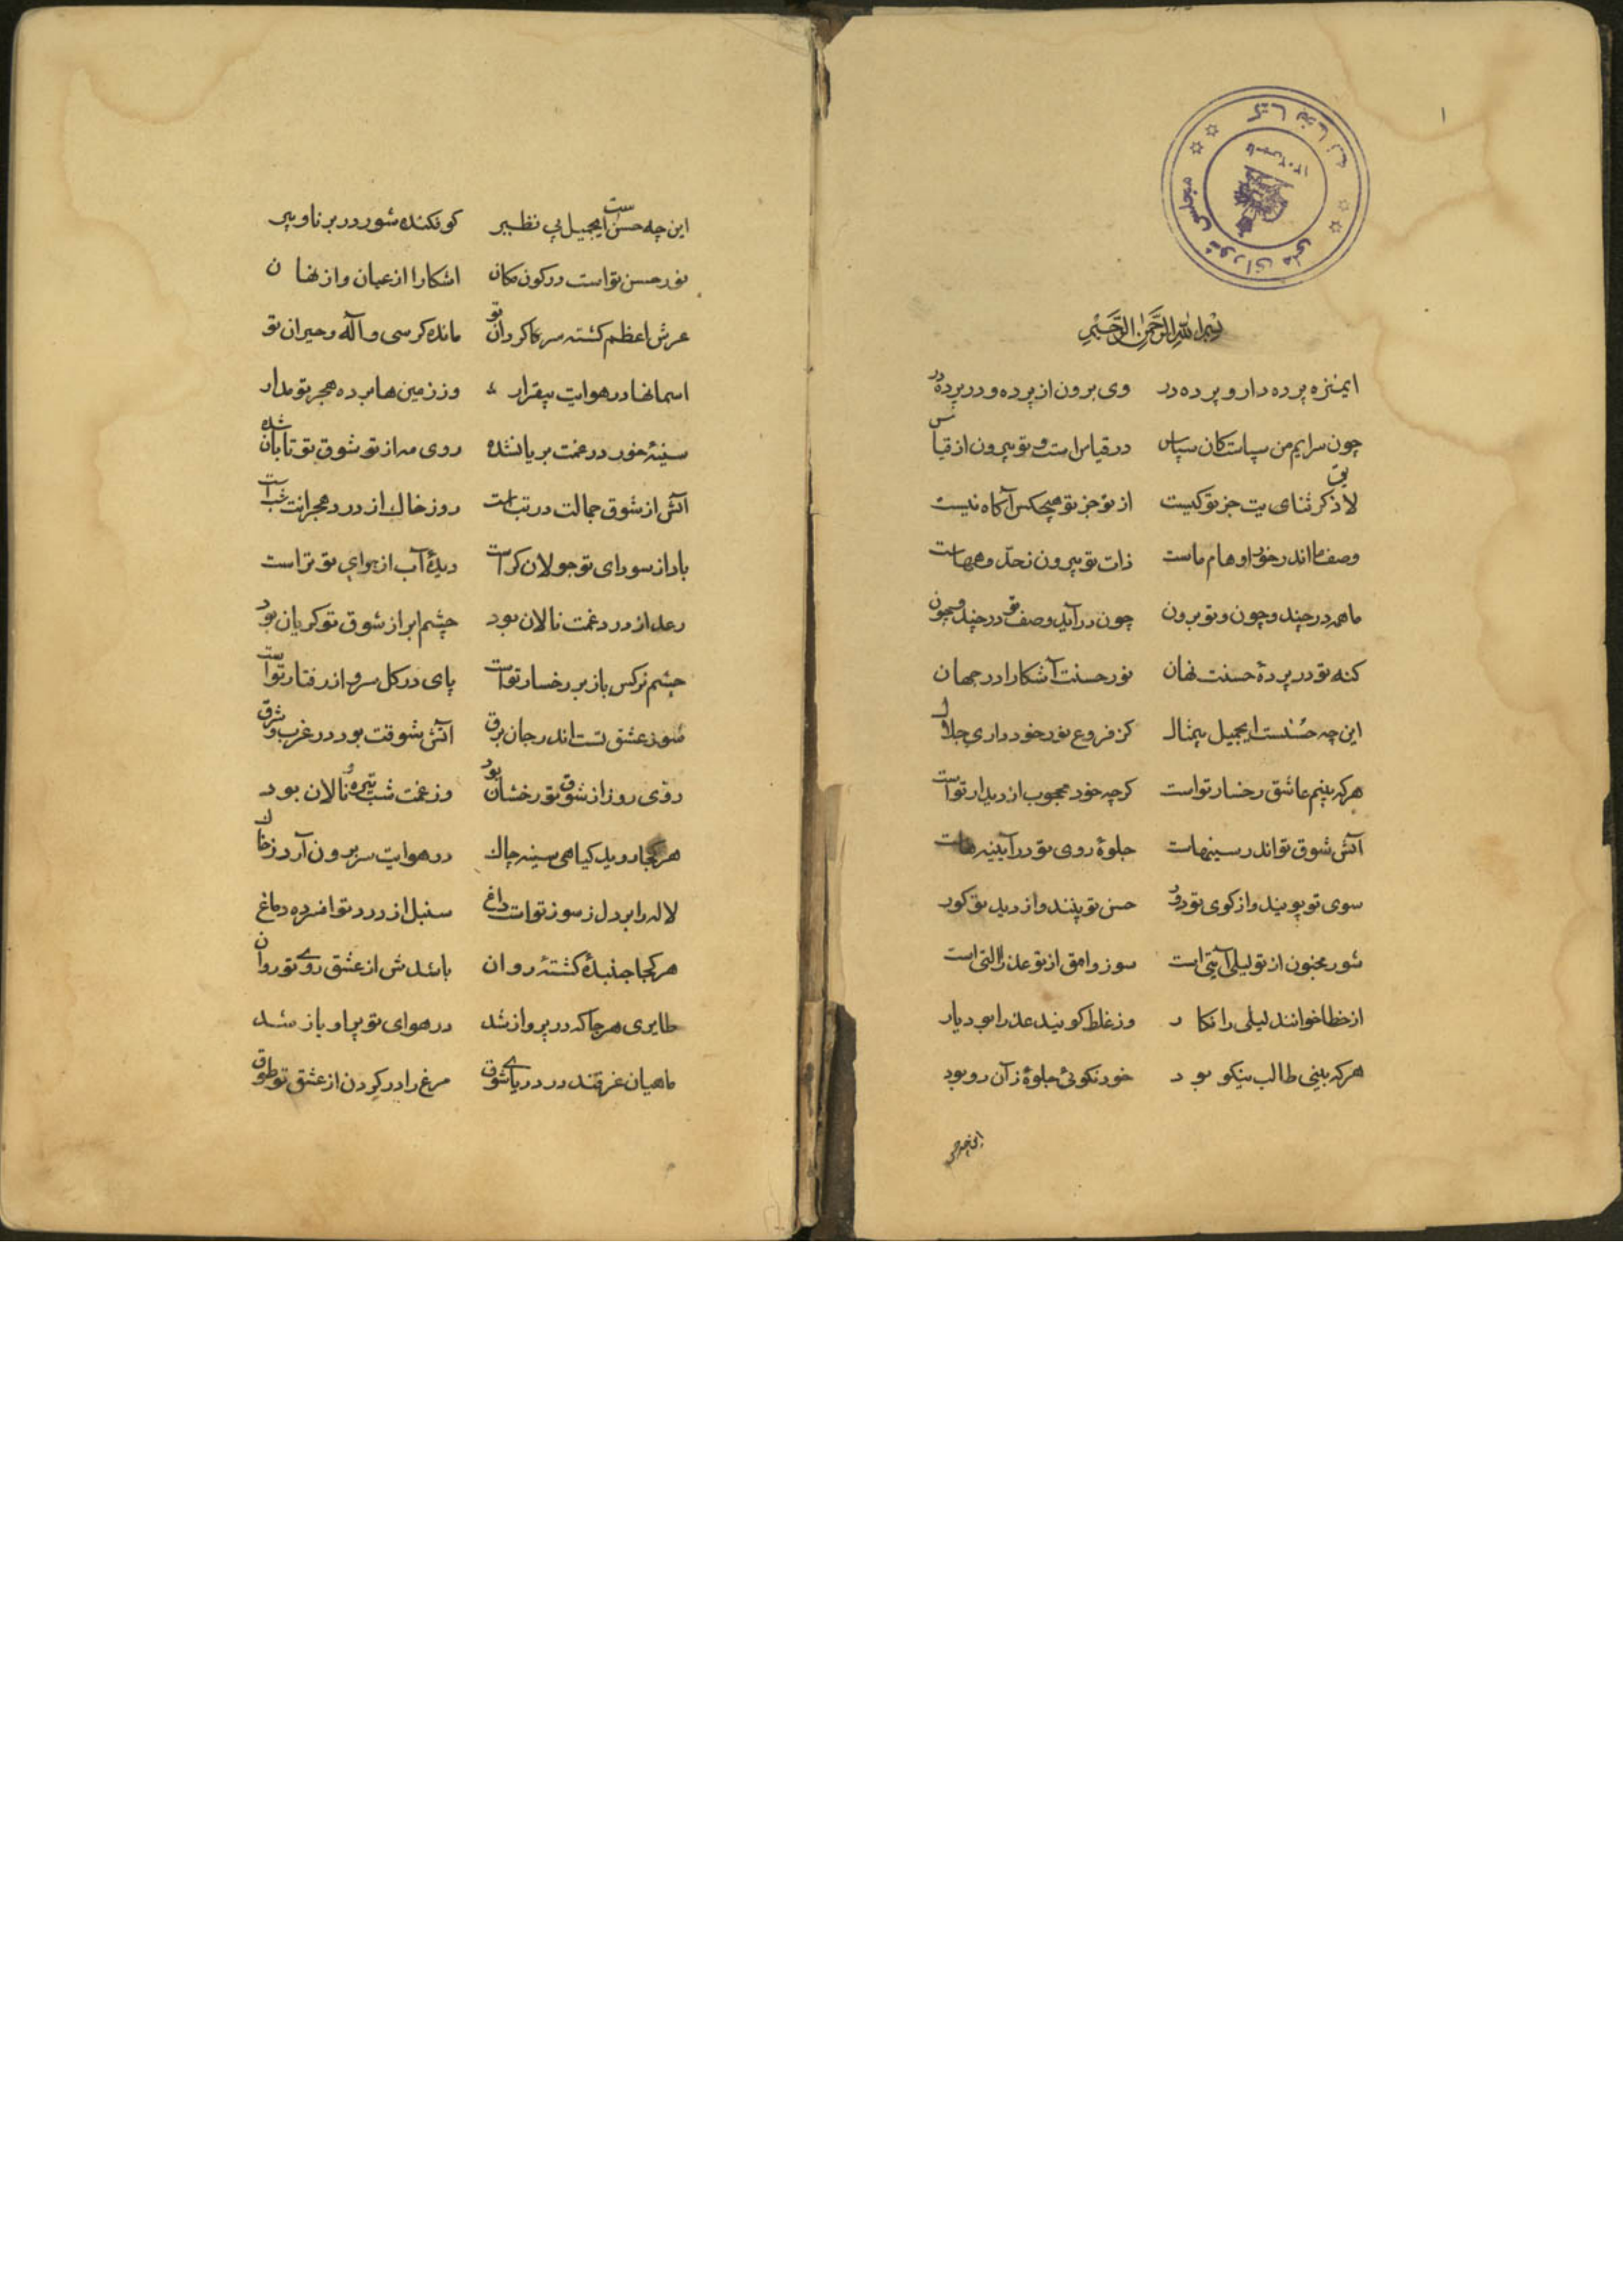 ۱
کتابخانه مجلس شورای ملی
بسم الله الرحمن الرحیم
ایمنزه پرده دار و پرده در وی برون از پرده و در پرده در
چون سرایم من سپاست کان سپاس در قیاس است و تو بیرون از قیاس
لایق ذکر ثنایت جز تو کیست از تو جز تو هیچکس آکاه نیست
وصف ما اندر خور اوهام ماست ذات تو بیرون ز حد
ما همه در چند و چون و تو برون چون در آید وصف تو در چند و چون
کنه تو در پردهٔ حسنت نهان نور حسنت آشکارا در جهان
این چه حسنست ایجمیل بیمثال کز فروغ نور خود داری جلال
هرکه بینم عاشق رخسار تو است کرچه خود محجوب از دیدار تو است
آتش شوق تو اندر سینهاست جلوهٔ روی تو در آیینه هاست
سوی تو پویند و از کوی تو دور حسن تو بینند و از دید تو کور
شور مجنون از تو لیلی آیتی است سوز وامق از تو عذرا التی است
از خطا خوانند لیلی را نکار وز غلط کویند عذرا بود یار
هرکه بینی طالب نیکو بود خود نکوئی جلوهٔ زآن رو بود
این چه حسن است ایجمیل بی نظیر کو فکنده شور در برنا و پیر
نور حسن تو است در کون مکان اشکارا از عیان و از نهان
عرش اعظم کشته سر کردان تو مانده کرسی واله و حیران تو
اسمانها در هوایت بیقرار وز زمین ها برده هجر تو مدار
سینهٔ خور در غمت بریان شده روی مه از تو شوق تو تابان شده
آتش از شوق جمالت در تب است روز خاک از درد هجرانت شب است
باد از سودای تو جولان کر است دیدهٔ آب از هوای تو تر است
رعد از درد غمت نالان بود چشم ابر از شوق تو کریان بود
چشم نرکس باز بر رخسار تو است پای در کل سرو از رفتار تو است
سوز عشق تست اندر جان برق آتش شوقت بود در غرب و شرق
روی روز از شوق تو رخشان بود وز غمت شب تیره و نالان بود
هرکجا روید کیاهی سینه چاک در هوایت سر برون آرد ز خاک
لاله را بر دل ز سوز تو است داغ سنبل از درد تو افسرده دماغ
هرکجا جنبدهٔ کشته روان باشدش از عشق روی تو روان
طایری هرجا که در پرواز شد در هوای تو پر او باز شد
ماهیان غرقند در دریای شوق مرغ را در کردن از عشق تو طوق